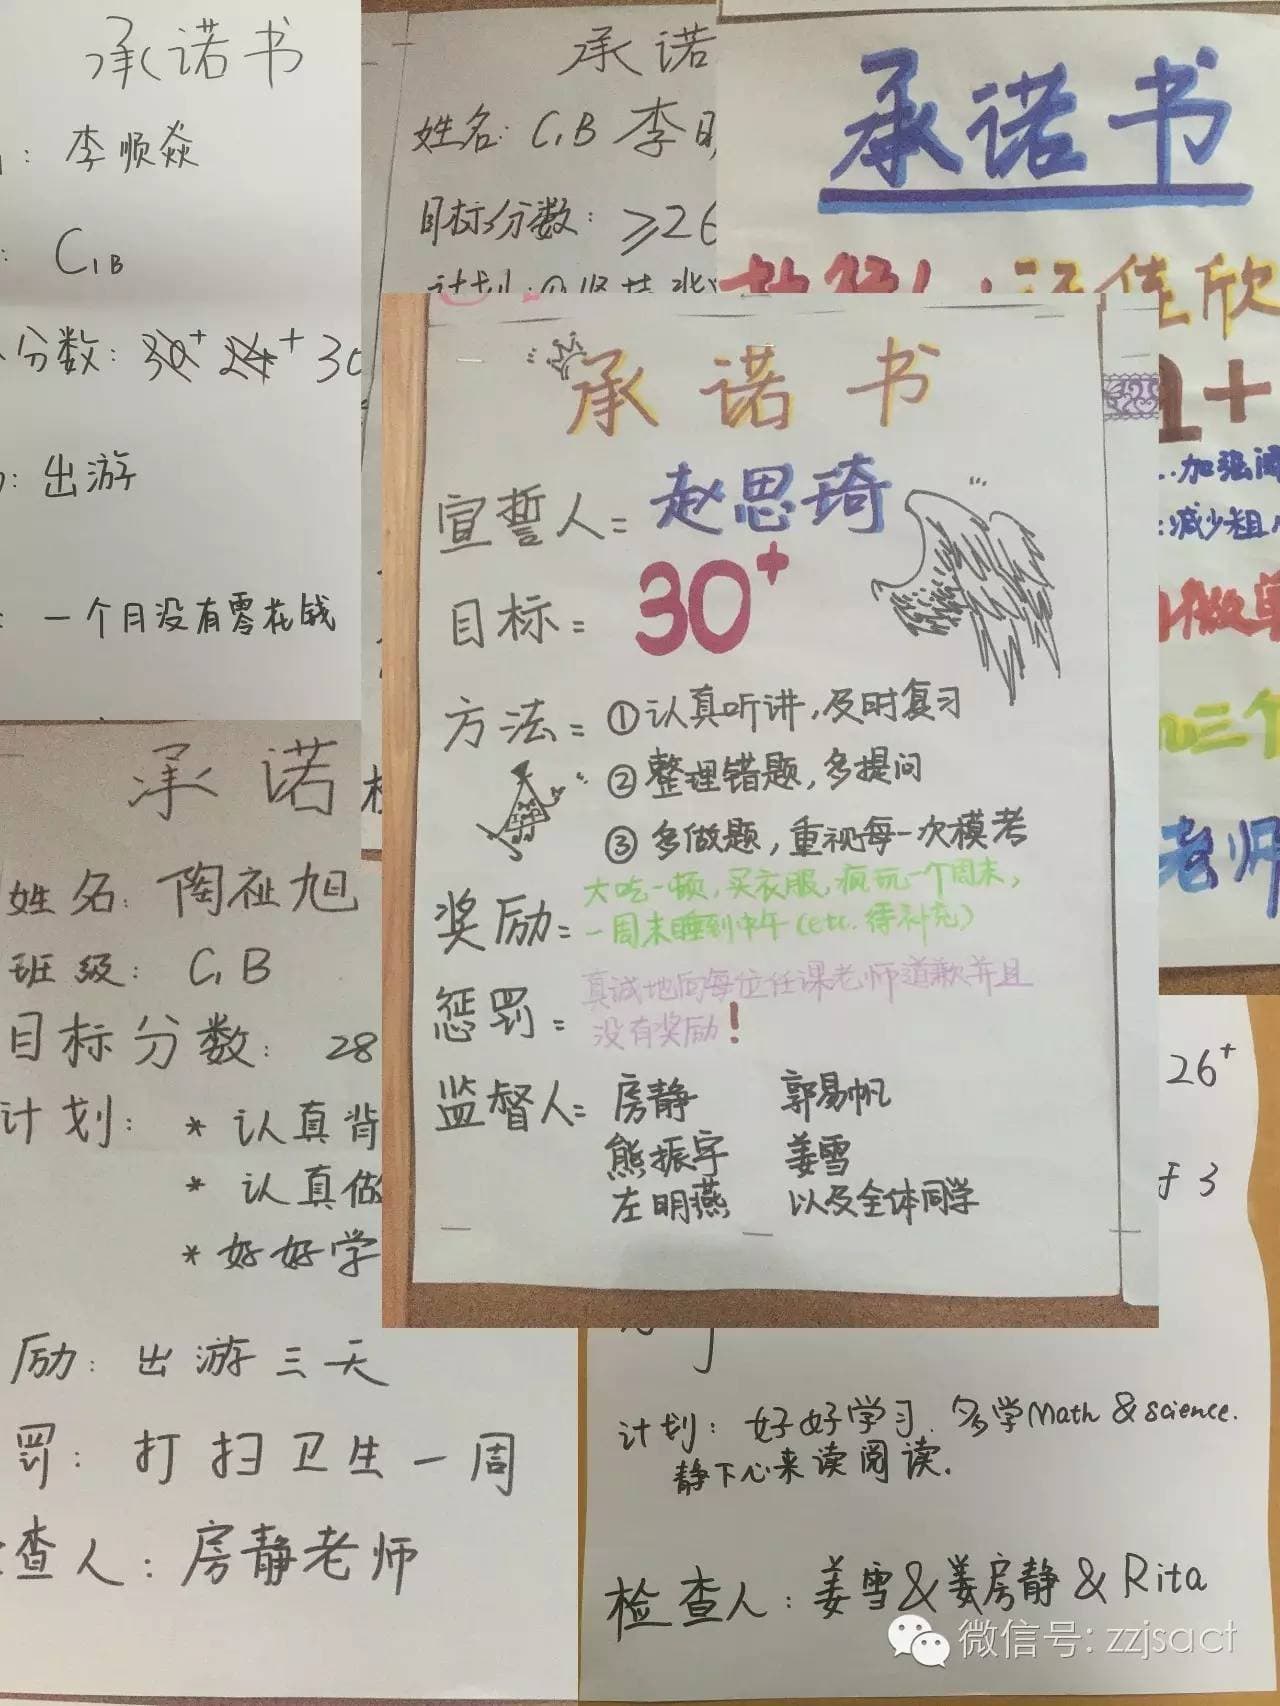 承诺书
李顺焱
C1B
分数: 30+ 24+ 30
出游
一个月没有零花钱
承诺
姓名: C1B 李明
目标分数: ≥26
计划: ①坚持背
承诺书
汪佳欣
1+
加强阅
减少粗心
做单
三个
老师
承诺书
宣誓人= 赵思琦
目标= 30+
方法= ①认真听讲,及时复习
②整理错题,多提问
③多做题,重视每一次模考
奖励= 大吃一顿,买衣服,疯玩一个周末,
一周末睡到中午(etc.待补充)
惩罚= 真诚地向每位任课老师道歉并且
没有奖励!
监督人= 房静 郭易帆
熊振宇 姜雪
左明燕 以及全体同学
承诺
姓名: 陶祉旭
班级: C1B
目标分数: 28
计划: * 认真背
* 认真做
* 好好学
励: 出游三天
罚: 打扫卫生一周
查人: 房静老师
26+
于3
计划: 好好学习. 多学Math & science.
静下心来读阅读.
检查人: 姜雪&姜房静 & Rita
微信号: zzjsact